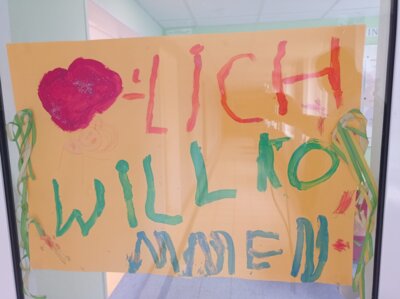 -LICH
WILLKO
MMEN